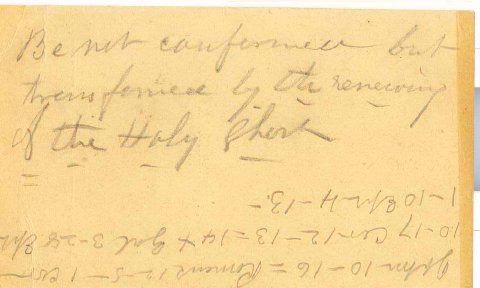 Be not conformed but
transformed by the renewing
of the Holy Ghost
John 10-16 = Romans 12-5-1 Cor-
10-17 Cor-12-13=14 + Gal 3-28 Eph
1-10 Eph-4-13-